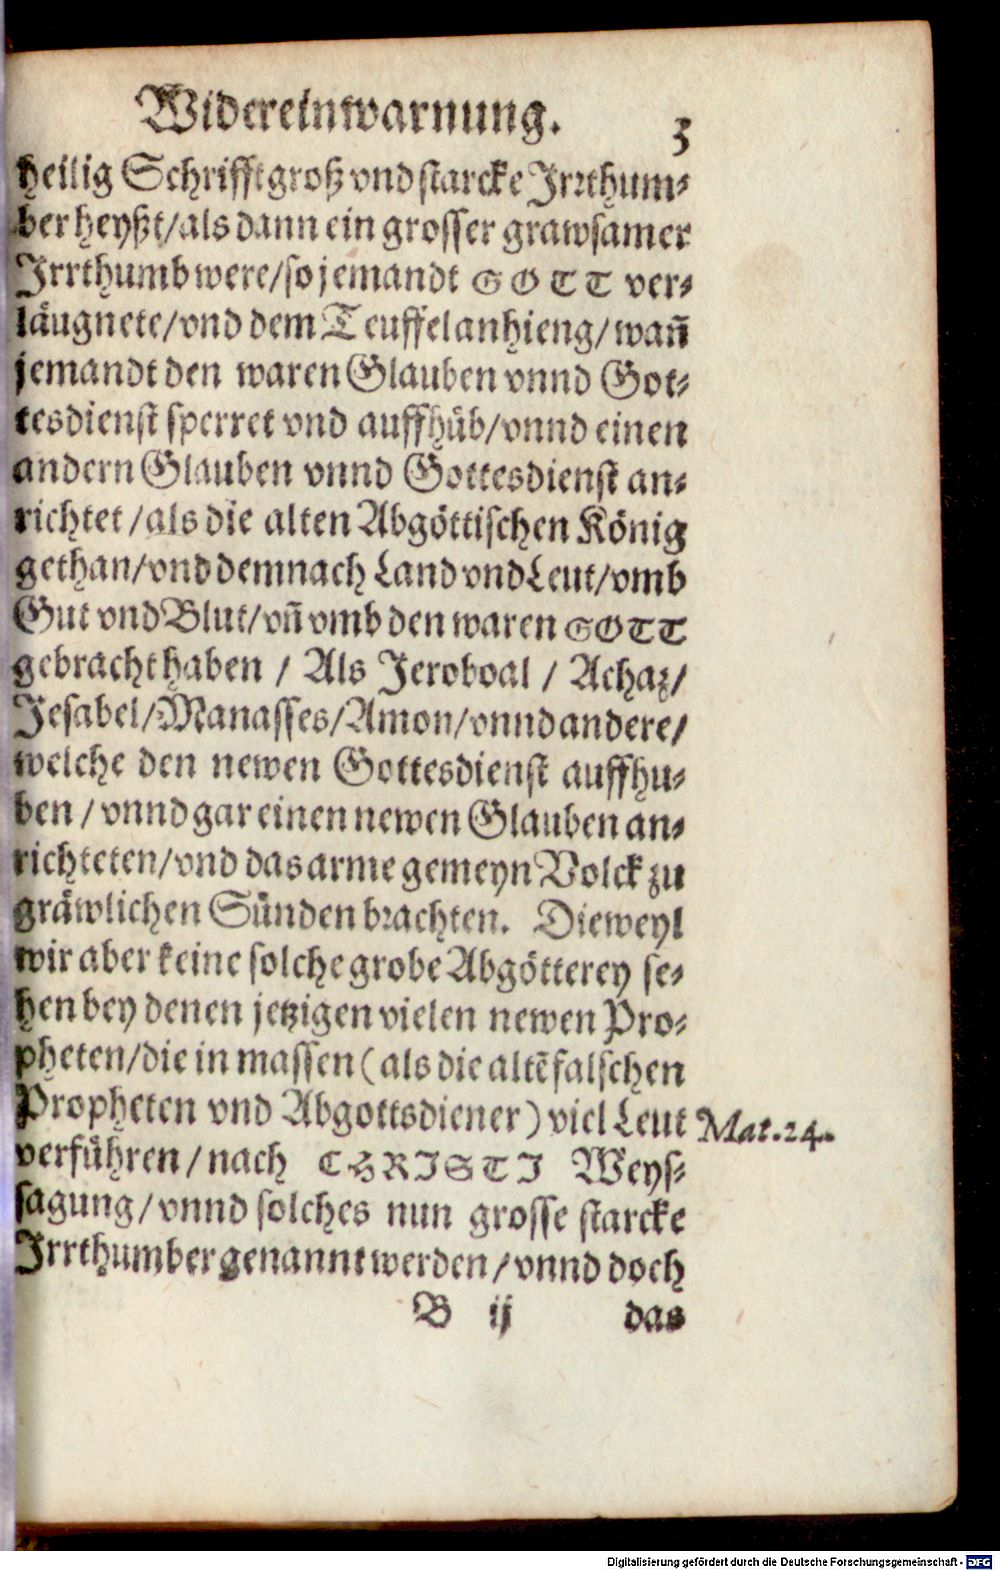 Widereinwarnung. 3
heilig Schrifft groß vnd starcke Irrthum-
ber heyßt/als dann ein grosser grawsamer
Irrthumb were/so jemandt GOTT ver-
läugnete/vnd dem Teuffel anhieng/wañ
jemandt den waren Glauben vnnd Got-
tesdienst sperret vnd auffhüb/vnnd einen
andern Glauben vnnd Gottesdienst an-
richtet/als die alten Abgöttischen König
gethan/vnd demnach Land vnd Leut/vmb
Gut vnd Blut/vñ vmb den waren GOTT
gebracht haben / Als Jeroboal / Achaz/
Jesabel/Manasses/Amon/vnnd andere/
welche den newen Gottesdienst auffhu-
ben/vnnd gar einen newen Glauben an-
richteten/vnd das arme gemeyn Volck zu
gräwlichen Sünden brachten. Dieweyl
wir aber keine solche grobe Abgötterey se-
hen bey denen jetzigen vielen newen Pro-
pheten/die in massen (als die altẽ falschen
Propheten vnd Abgottsdiener) viel Leut
Mat.24.
verführen/nach CHRISTI Weys-
sagung/vnnd solches nun grosse starcke
Irrthumber genannt werden/vnnd doch
B ij das
Digitalisierung gefördert durch die Deutsche Forschungsgemeinschaft - DFG